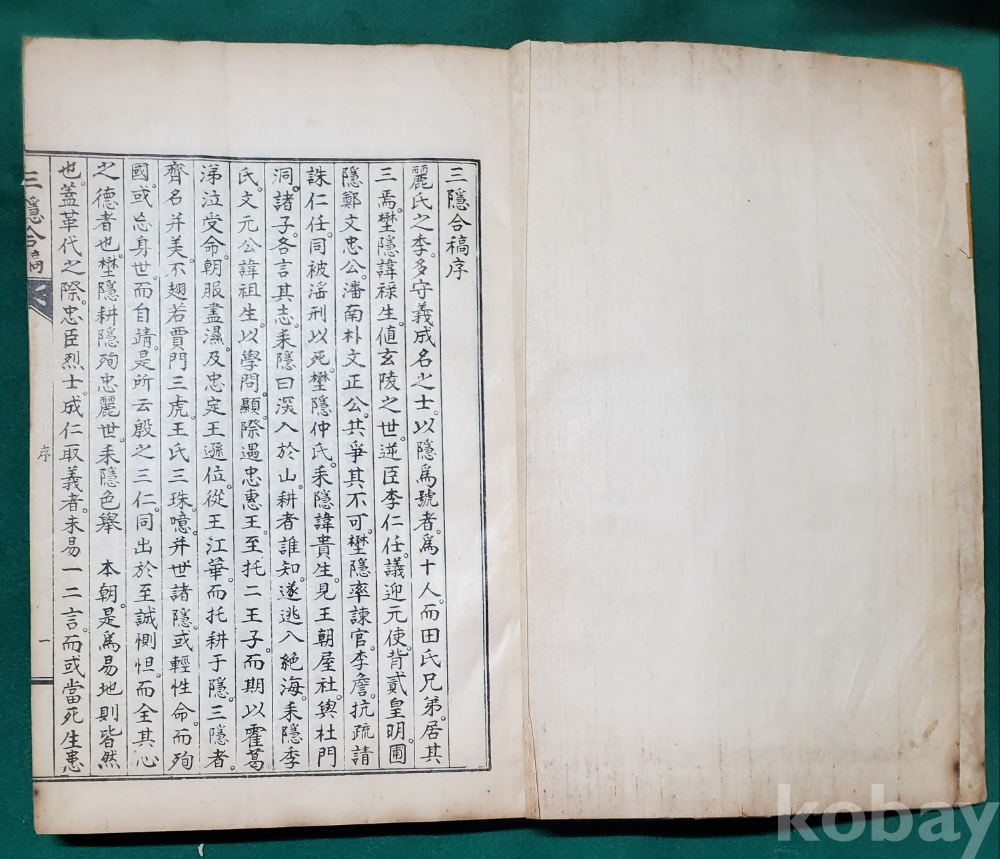 三隱合稿序
麗氏之季。多守義成名之士。以隱爲號者。爲十人。而田氏兄弟。居其
三焉。壄隱諱祿生。値玄陵之世。逆臣李仁任。議迎元使。背貳皇明。圃
隱鄭文忠公。潘南朴文正公。共爭其不可。壄隱率諫官。李詹。抗疏請
誅仁任。同被滛刑以死。壄隱仲氏。耒隱諱貴生。見王朝屋社。與杜門
洞諸子。各言其志。耒隱曰深入於山。耕者誰知。遂逃入絶海。耒隱季
氏。文元公諱祖生。以學問。顯際遇忠惠王。至托二王子。而期以霍葛
涕泣受命。朝服盡濕。及忠定王遜位。從王江華。而托耕于隱。三隱者。
齊名并美。不翅若賈門三虎。王氏三珠。噫。并世諸隱。或輕性命。而殉
國。或忘身世。而自靖。是所云殷之三仁。同出於至誠惻怛。而全其心
之德者也。壄隱耕隱殉忠麗世。耒隱色擧 本朝。是爲易地則皆然
也。蓋革代之際。忠臣烈士。成仁取義者。未易一二言。而或當死生患
三隱合稿
序
一
kobay